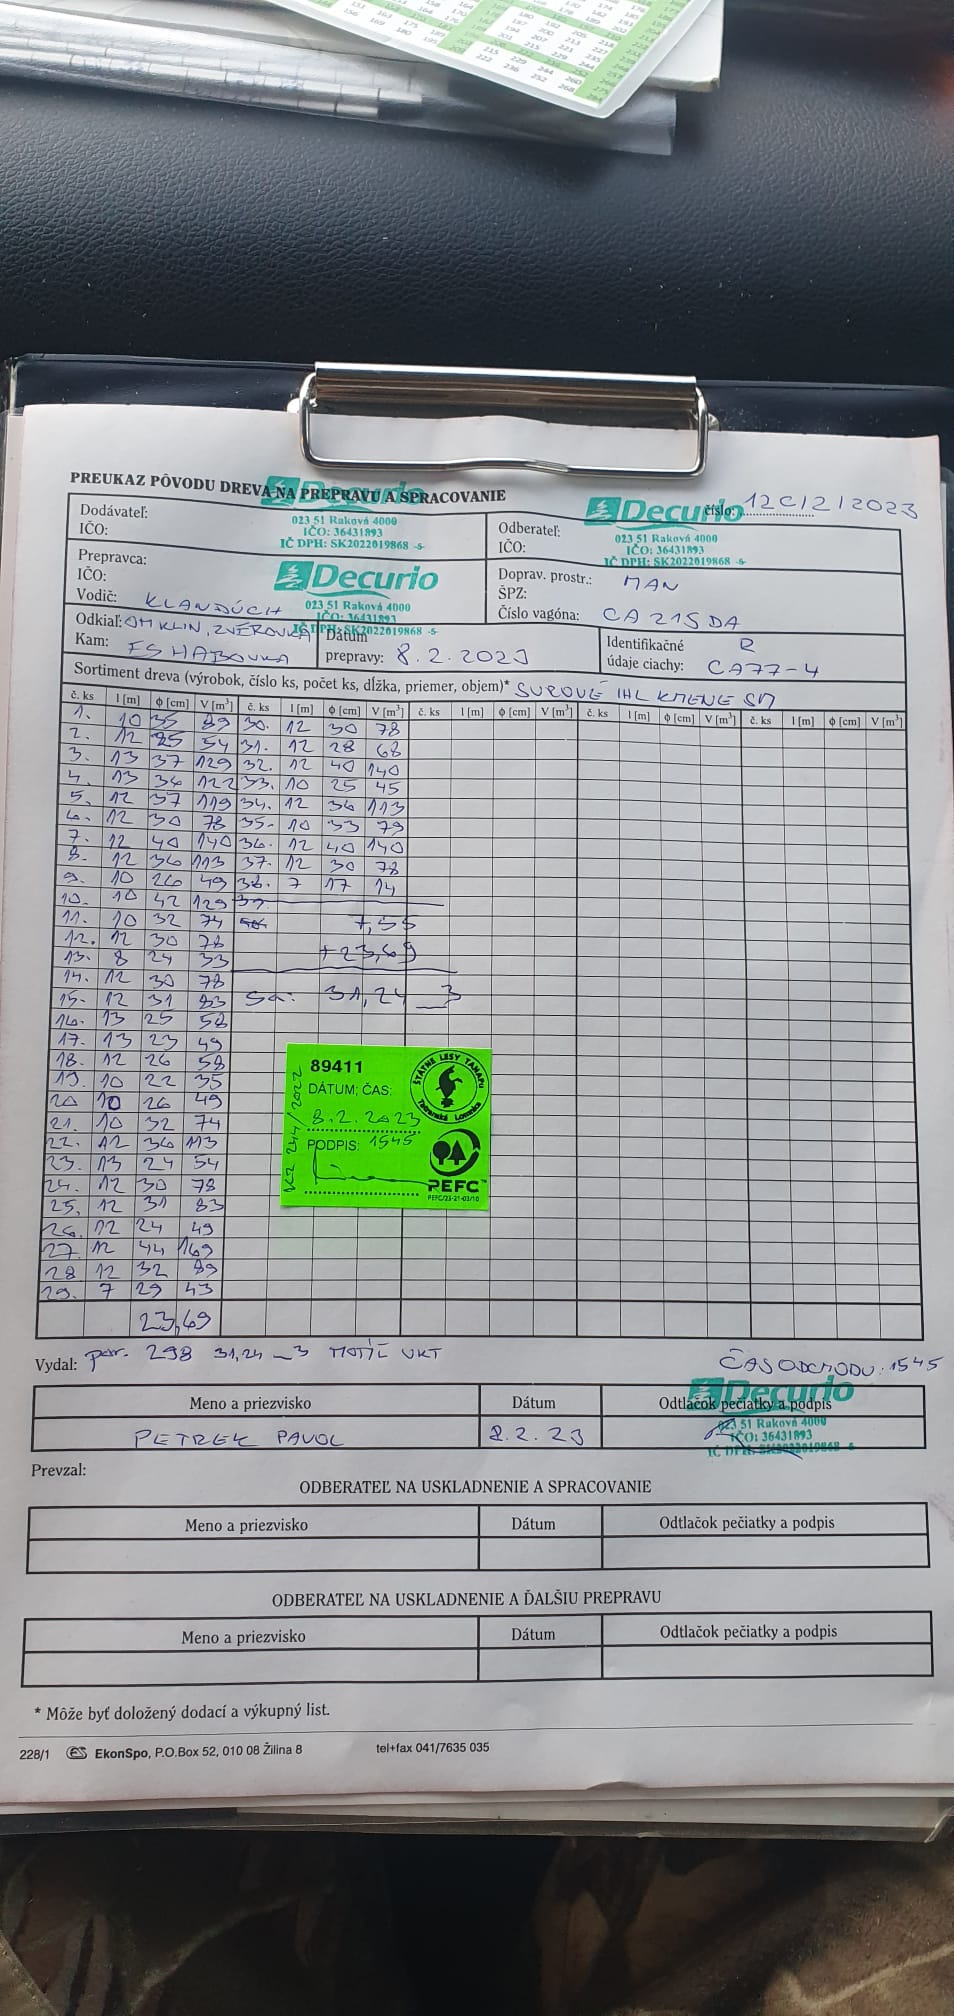 PREUKAZ PÔVODU DREVA NA PREPRAVU A SPRACOVANIE
číslo: 12C/2/2023
Dodávateľ:
IČO:
Decurio
023 51 Raková 4000
IČO: 36431893
IČ DPH: SK2022019868 -5-
Odberateľ:
IČO:
Decurio
023 51 Raková 4000
IČO: 36431893
IČ DPH: SK2022019868 -5-
Prepravca:
IČO:
Vodič: KLANDÚCH
Decurio
023 51 Raková 4000
IČO: 36431893
IČ DPH: SK2022019868 -5-
Doprav. prostr.: MAN
ŠPZ:
Číslo vagóna: CA 215 DA
Odkiaľ: OH KLIN, ZVEROVKA
Kam: ES HABOVKA
Dátum
prepravy: 8.2.2023
Identifikačné R
údaje ciachy: CA77-4
Sortiment dreva (výrobok, číslo ks, počet ks, dĺžka, priemer, objem)* SUROVÉ IHL KMENE SM
č. ks l [m] ϕ [cm] V [m³] č. ks l [m] ϕ [cm] V [m³] č. ks l [m] ϕ [cm] V [m³] č. ks l [m] ϕ [cm] V [m³] č. ks l [m] ϕ [cm] V [m³]
1. 10 35 89 30. 12 30 78
2. 12 25 54 31. 12 28 68
3. 13 37 129 32. 12 40 140
4. 13 36 122 33. 10 25 45
5. 12 37 119 34. 12 36 113
6. 12 30 78 35. 10 33 79
7. 12 40 140 36. 12 40 140
8. 12 36 113 37. 12 30 78
9. 10 26 49 38. 7 17 14
10. 10 42 129 39.
11. 10 32 74 7,55
12. 12 30 78
13. 8 24 33 +23,69
14. 12 30 78
15. 12 31 83 Sa: 31,24 _3
16. 13 25 58
17. 13 23 49
18. 12 26 58
19. 10 22 35
20 10 26 49
21. 10 32 74
22. 12 36 113
23. 13 24 54
24. 12 30 78
25. 12 31 83
26. 12 24 49
27. 12 44 169
28 12 32 89
29. 7 29 43
23,69
89411
DÁTUM; ČAS:
8.2.2023
PODPIS: 1545
244/2022
ŠTÁTNE LESY TANAPu
Tatranská Lomnica
PEFC™
PEFC/23-21-03/10
Vydal: por. 298 31,24 _3 MOTÍL VKT
ČAS ODCHODU: 1545
Meno a priezvisko Dátum Odtlačok pečiatky a podpis
PETREK PAVOL 8.2.23
Decurio
023 51 Raková 4000
IČO: 36431893
IČ DPH: SK2022019868 -5-
Prevzal:
ODBERATEĽ NA USKLADNENIE A SPRACOVANIE
Meno a priezvisko Dátum Odtlačok pečiatky a podpis
ODBERATEĽ NA USKLADNENIE A ĎALŠIU PREPRAVU
Meno a priezvisko Dátum Odtlačok pečiatky a podpis
* Môže byť doložený dodací a výkupný list.
228/1 EkonSpo, P.O.Box 52, 010 08 Žilina 8 tel+fax 041/7635 035